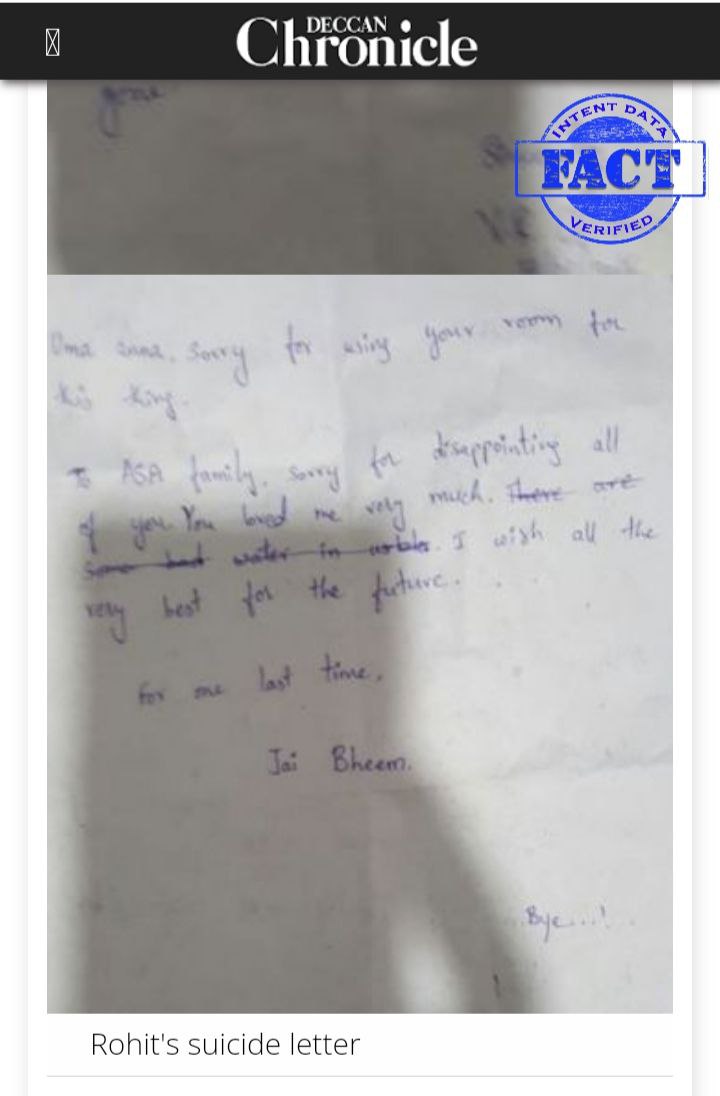 DECCAN
Chronicle
gone
INTENT DATA
FACT
VERIFIED
Uma anna, sorry for using your room for
this thing.
To ASA family, sorry for disappointing all
of you. You loved me very much. There are
some bad water in . I wish all the
very best for the future.
For one last time,
Jai Bheem.
Bye...!
Rohit's suicide letter